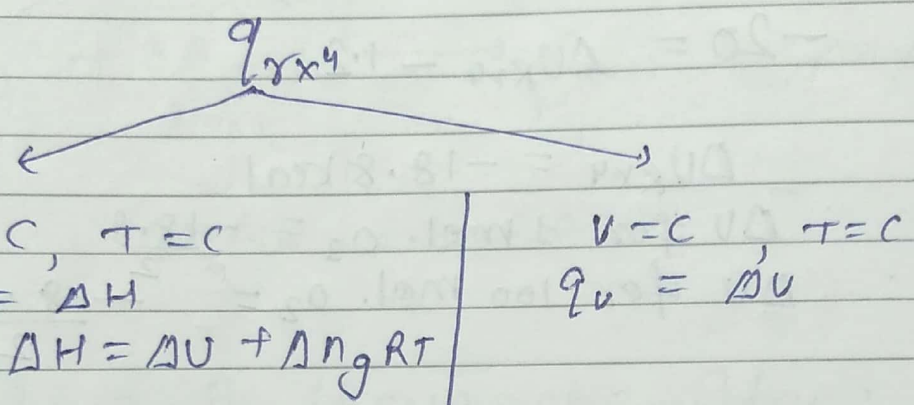 q rx4
C, T = C
= ΔH
ΔH = ΔU + Δng RT
V = C, T = C
qv = ΔU